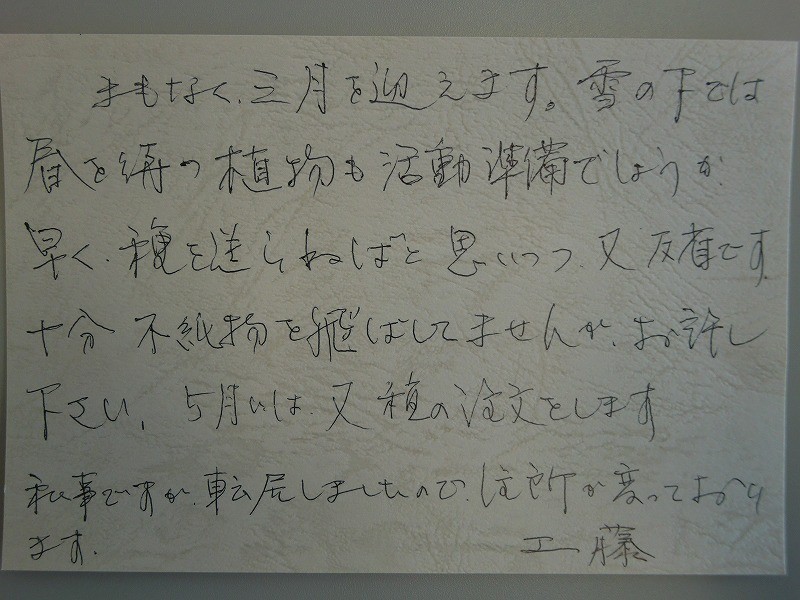 まもなく、三月を迎えます。雪の下では
春を待つ植物も活動準備でしょうか
早く、種を送らねばと思いつつ、又反省です。
十分不純物を飛ばしてませんが、お許し
下さい、5月には、又種の注文をします
私事ですが、転居しましたので、住所が変っており
ます.
工藤